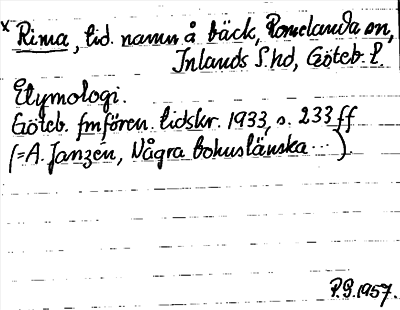 x Rima, tid. namn å bäck, Romelanda sn,
Inlands S. hd, Göteb. l.
Etymologi.
Göteb. fmfören. tidskr. 1933, s. 233 ff
(=A. Janzén, Några bohuslänska...).
P.G. 1957.